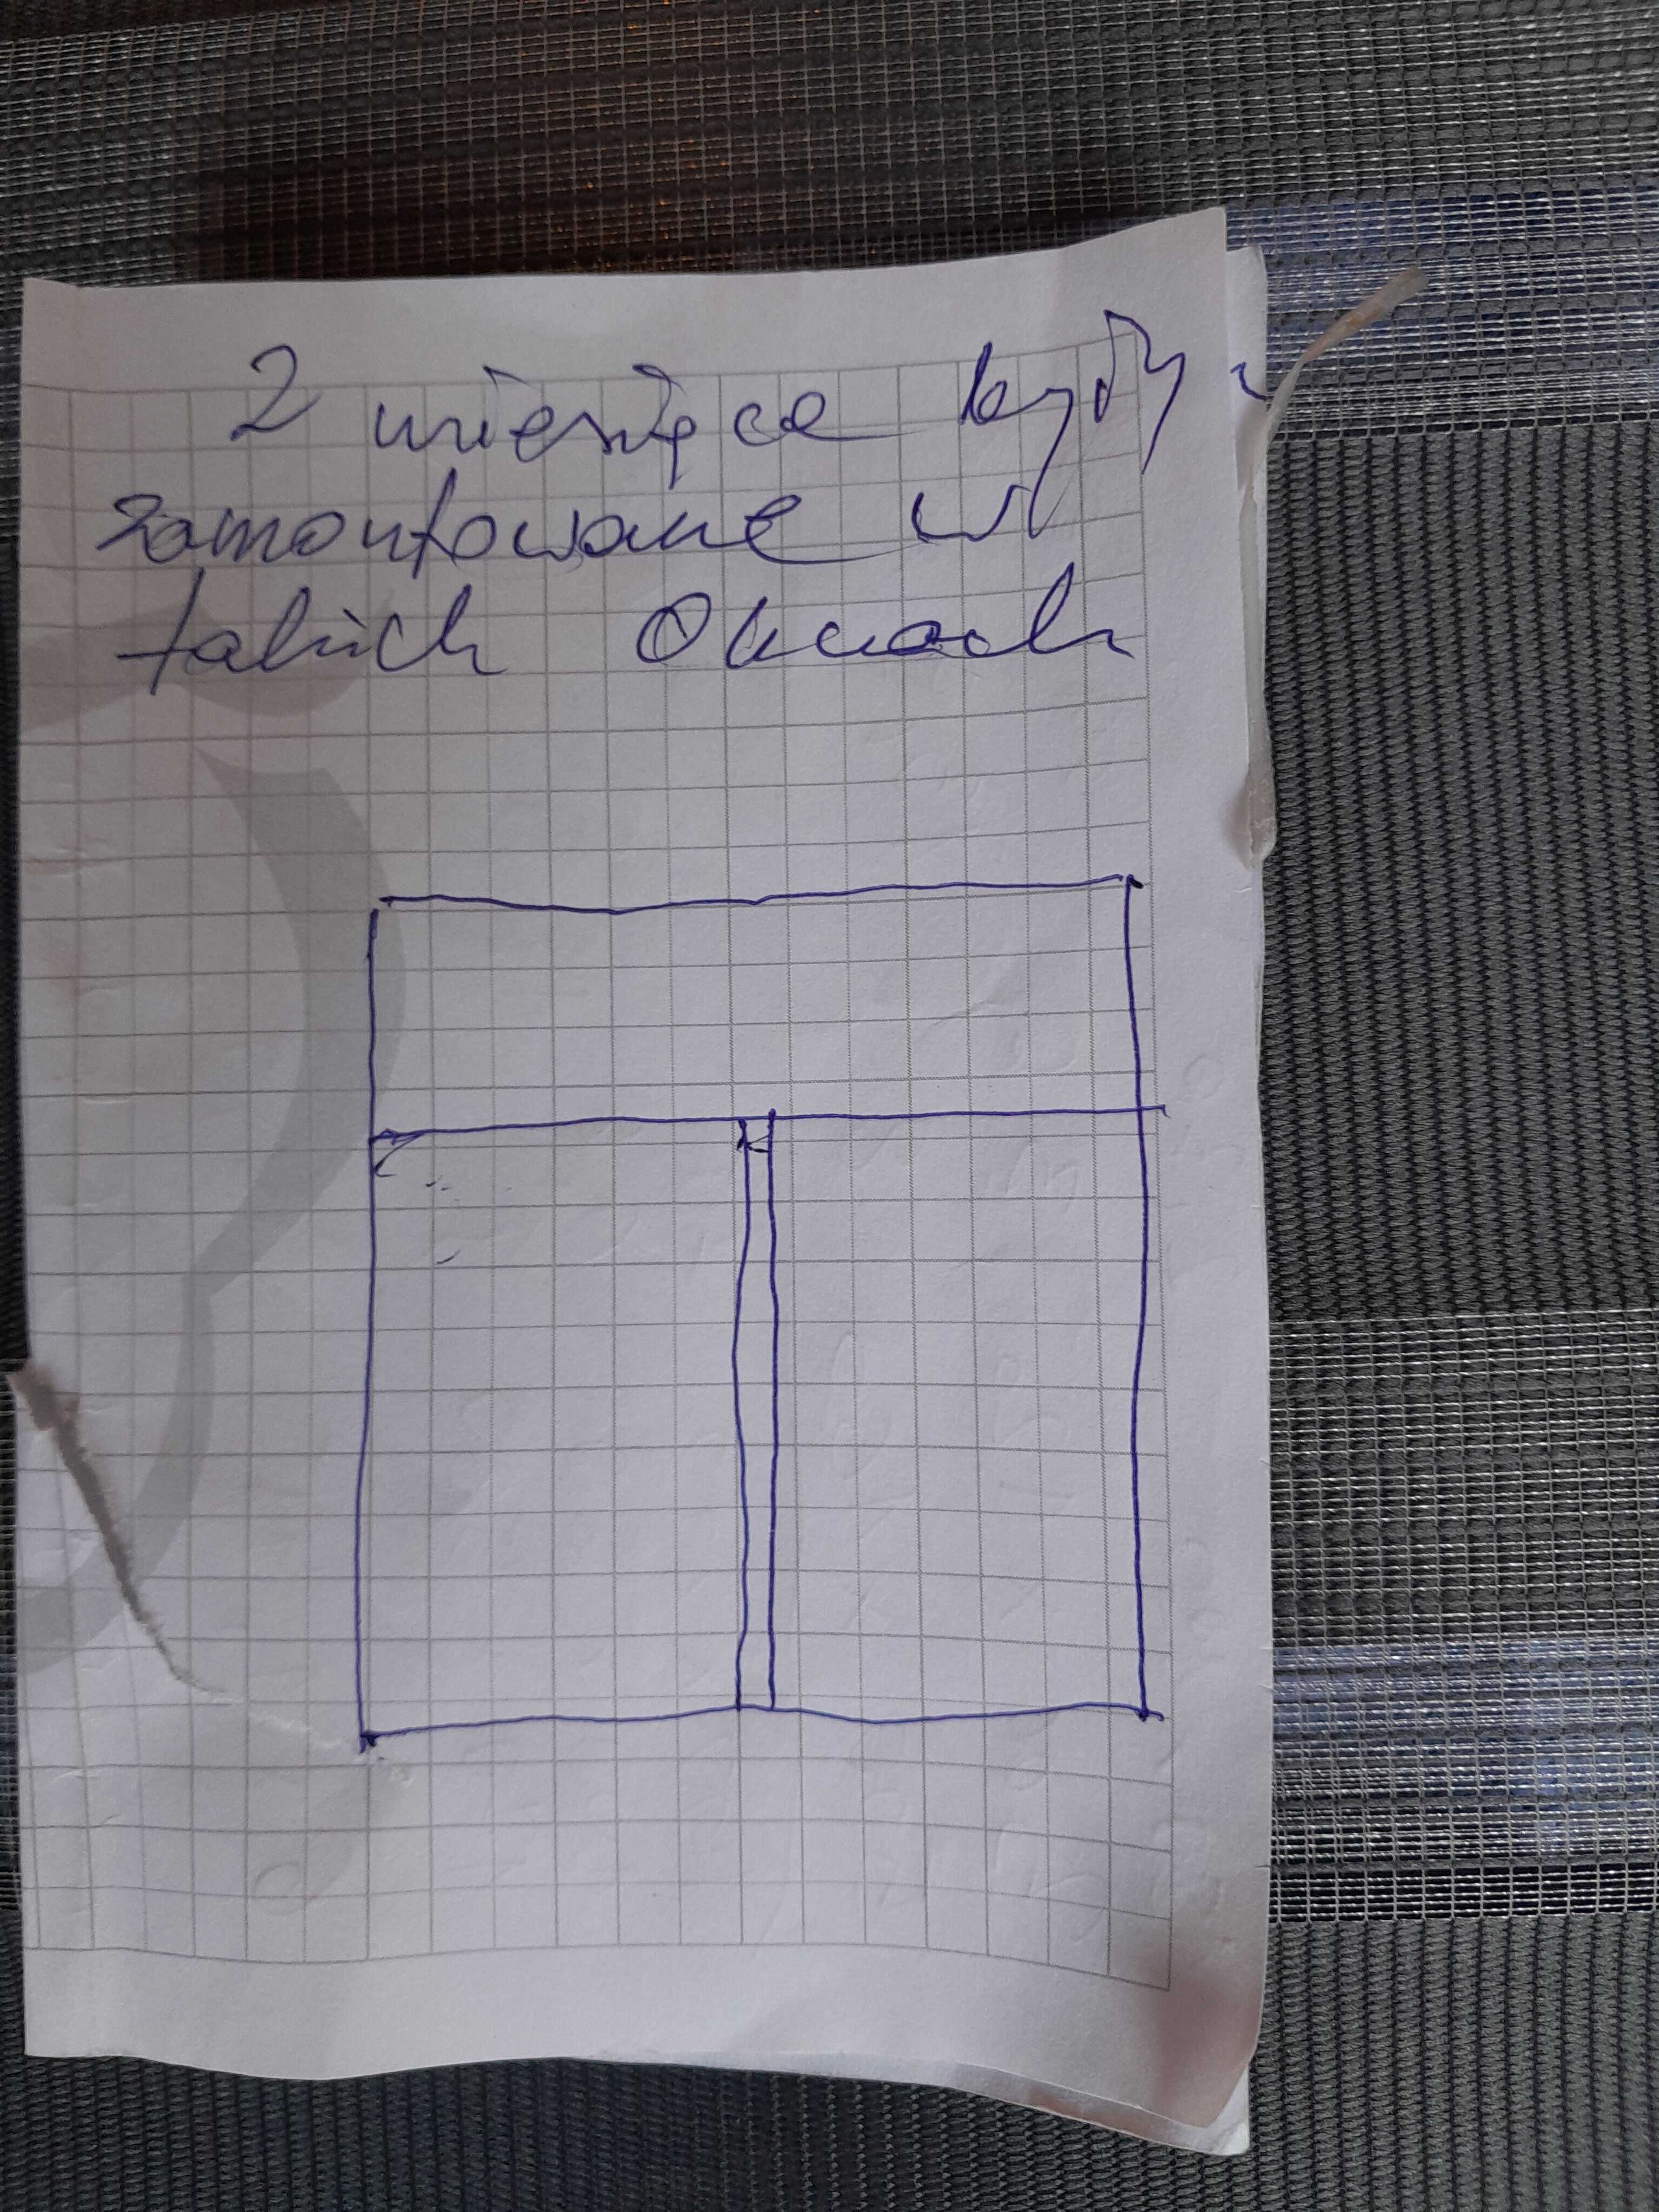 2 miesiące były
zamontowane w
takich Oknach